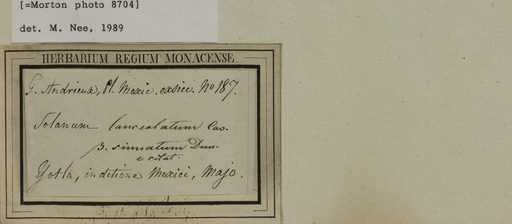 [=Morton photo 8704]
det. M. Nee, 1989
HERBARIUM REGIUM MONACENSE.
G. Andrieux, Pl. Mexic. exsicc. No 187.
Solanum lanceolatum Cav.
β. sinuatum Dun.
e citat.
Yotla, in ditione Mexici, Majo.